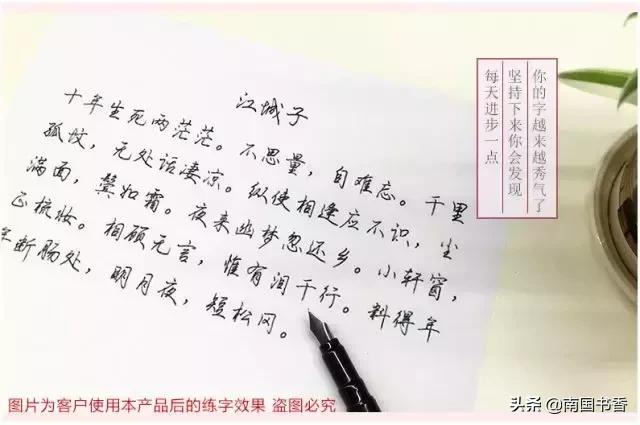 江城子
十年生死两茫茫。不思量，自难忘。千里
孤坟，无处话凄凉。纵使相逢应不识，尘
满面，鬓如霜。夜来幽梦忽还乡。小轩窗，
正梳妆。相顾无言，惟有泪千行。料得年
年断肠处，明月夜，短松冈。
每天进步一点
坚持下来你会发现
你的字越来越秀气了
图片为客户使用本产品后的练字效果 盗图必究
头条 @南国书香